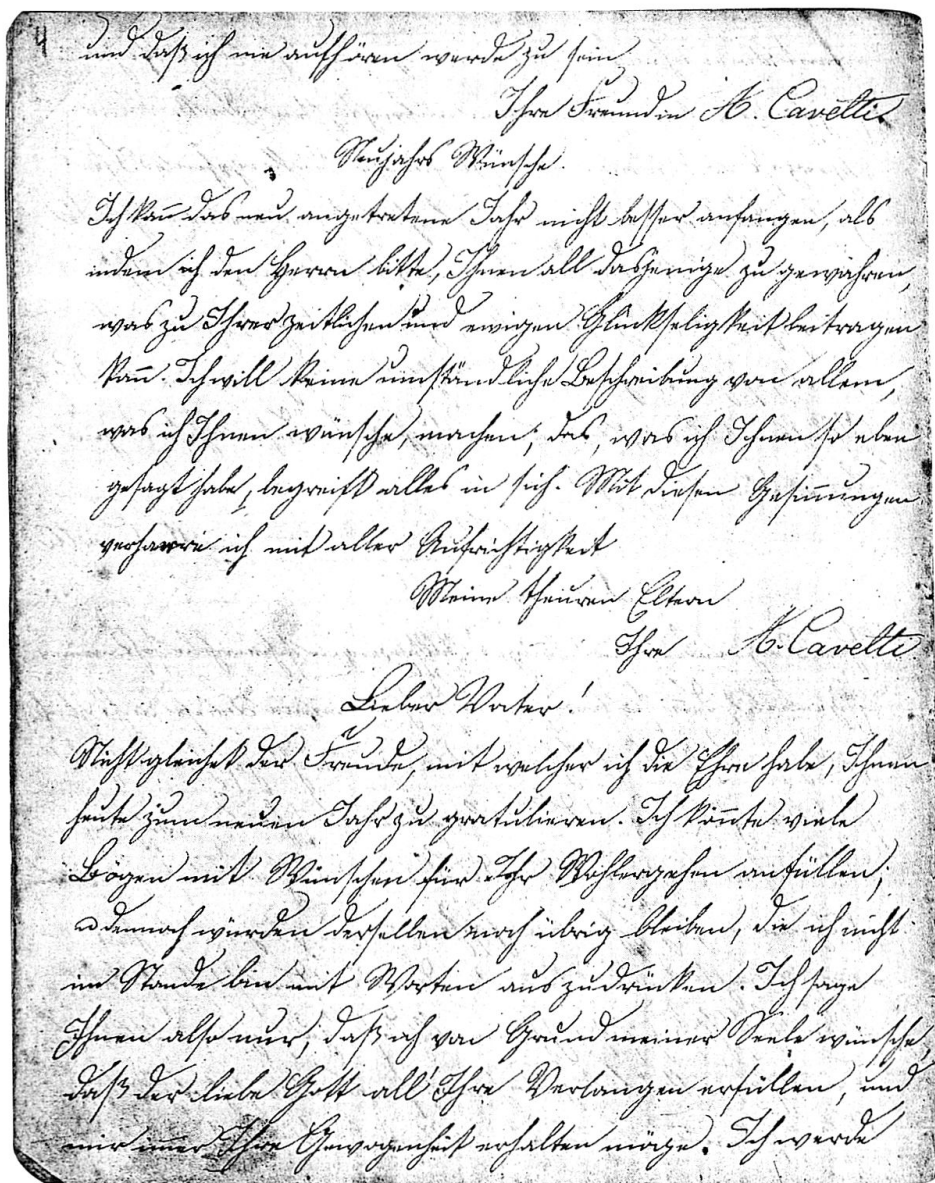 4
und daß ich nie aufhören werde zu sein
Ihre Freundin A. Cavelti.
Neujahrs Wünsche.
Ich kañ das neu angetretene Jahr nicht besser anfangen, als
indem ich den Herrn bitte, Ihnen all dasjenige zu gewähren,
was zu Ihrer zeitlichen und ewigen Glückseligkeit beitragen
kañ. Ich will keine umständliche Beschreibung von allem,
was ich Ihnen wünsche, machen; das, was ich Ihnen so eben
gesagt habe, begreift alles in sich. Mit diesen Gesiñungen
verharre ich mit aller Aufrichtigkeit
Meine theuren Eltern
Ihre A. Cavelti
Lieber Vater!
Nichts gleichet der Freude, mit welcher ich die Ehre habe, Ihnen
heute zum neuen Jahr zu gratulieren. Ich köñte viele
Bögen mit Wünschen für Ihr Wohlergehen anfüllen;
u dennoch würden derselben noch übrig bleiben, die ich nicht
im Stande bin mit Worten auszudrücken. Ich sage
Ihnen also nur, daß ich von Grund meiner Seele wünsche,
daß der liebe Gott all' Ihre Verlangen erfüllen, und
mir im̃er Ihre Gewogenheit erhalten möge. Ich werde